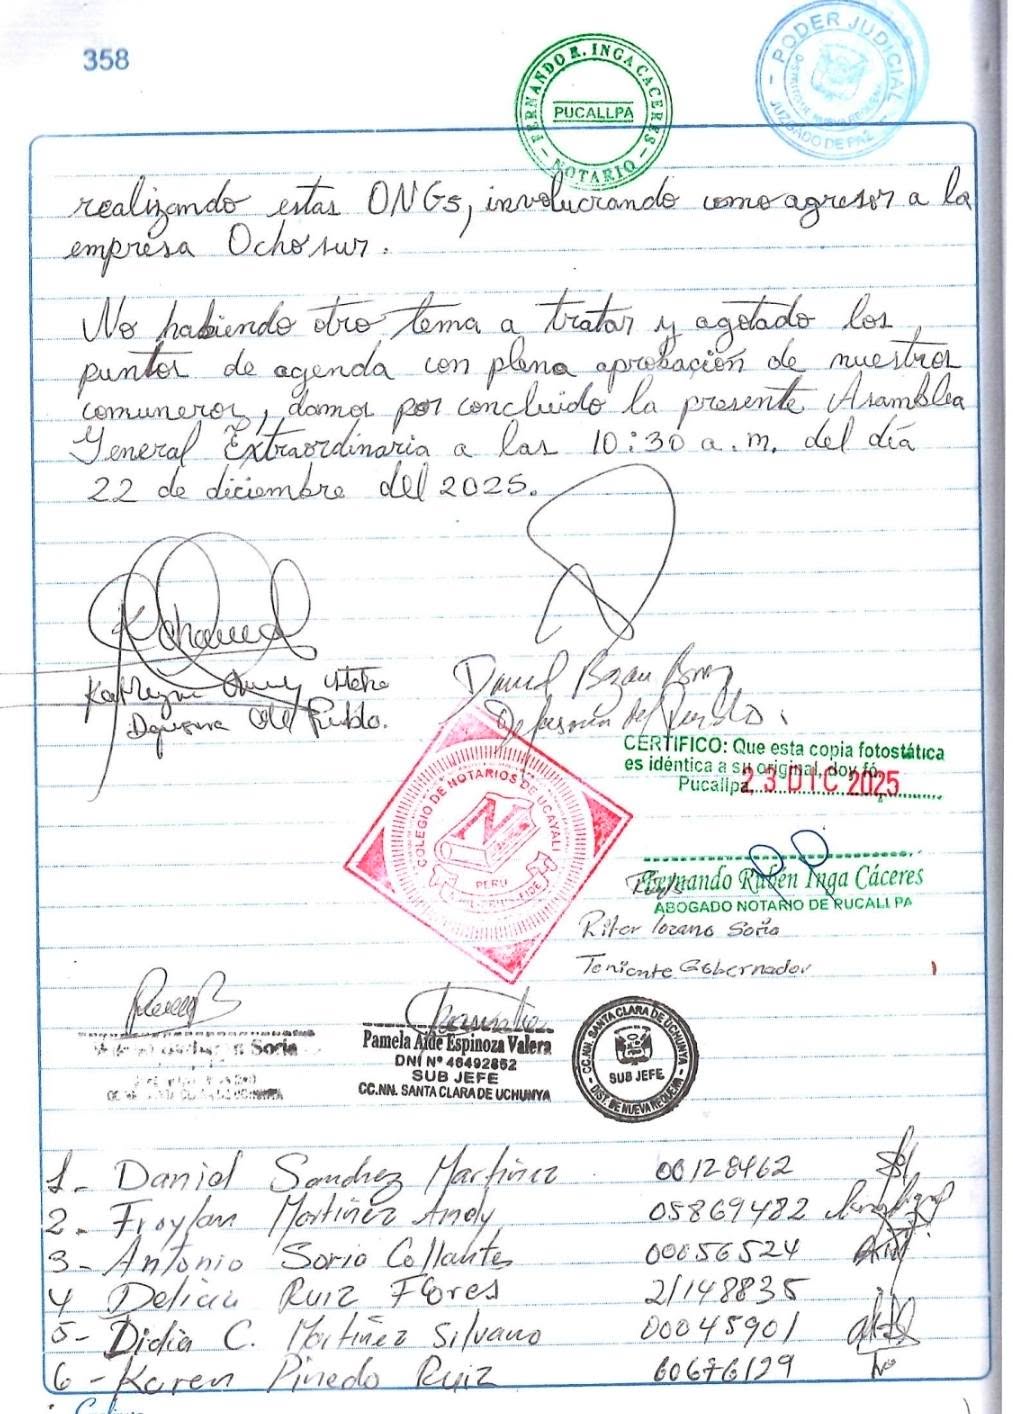 358
FERNANDO R. INGA CACERES
PUCALLPA
NOTARIO
PODER JUDICIAL
JUZGADO DE PAZ
realizando estas ONGs, involucrando como agresor a la
empresa Ochosur.
No habiendo otro tema a tratar y agotado los
puntos de agenda con plena aprobación de nuestros
comuneros, damos por concluido la presente Asamblea
General Extraordinaria a las 10:30 a.m. del día
22 de diciembre del 2025.
del Pueblo.
Bazan
del Pueblo.
CERTIFICO: Que esta copia fotostática
es idéntica a su original, doy fé.
Pucallpa, 23 DIC 2025
COLEGIO DE NOTARIOS DE UCAYALI
N
PERU
Fernando Rubén Inga Cáceres
ABOGADO NOTARIO DE PUCALLPA
Riter lozano Soria
Teniente Gobernador
Soria
Pamela Aide Espinoza Valera
DNI N° 46492852
SUB JEFE
CC.NN. SANTA CLARA DE UCHUNYA
CC.NN. SANTA CLARA DE UCHUNYA
SUB JEFE
DIST. DE NUEVA REQUENA
1- Daniel Sanchez Martinez 00128462
2- Froylan Martinez Andy 05869482
3- Antonio Soria Collantes 00056524
4 Delicia Ruiz Flores 21148835
5- Didia C. Martinez Silvano 00045901
6- Karen Pinedo Ruiz 60676129